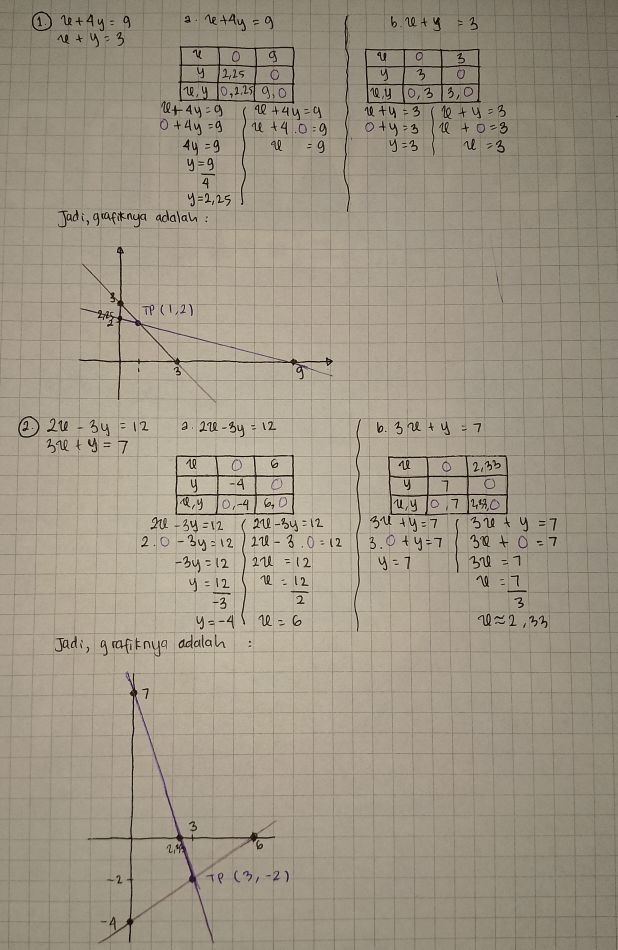 1. x + 4y = 9
x + y = 3
a. x + 4y = 9
x 0 9
y 2,25 0
x,y 0,2,25 9,0
x + 4y = 9
0 + 4y = 9
4y = 9
y = 9
4
y = 2,25
x + 4y = 9
x + 4 . 0 = 9
x = 9
b. x + y = 3
x 0 3
y 3 0
x,y 0,3 3,0
x + y = 3
0 + y = 3
y = 3
x + y = 3
x + 0 = 3
x = 3
Jadi, grafiknya adalah :
3
2,25
2
TP (1,2)
1 3 9
2. 2x - 3y = 12
3x + y = 7
a. 2x - 3y = 12
x 0 6
y -4 0
x,y 0,-4 6,0
2x - 3y = 12
2.0 - 3y = 12
-3y = 12
y = 12
-3
y = -4
2x - 3y = 12
2x - 3 . 0 = 12
2x = 12
x = 12
2
x = 6
b. 3x + y = 7
x 0 2,33
y 7 0
x,y 0,7 2,33,0
3x + y = 7
3.0 + y = 7
y = 7
3x + y = 7
3x + 0 = 7
3x = 7
x = 7
3
x ≈ 2,33
Jadi, grafiknya adalah :
7
3
2,33 6
-2 TP (3,-2)
-4